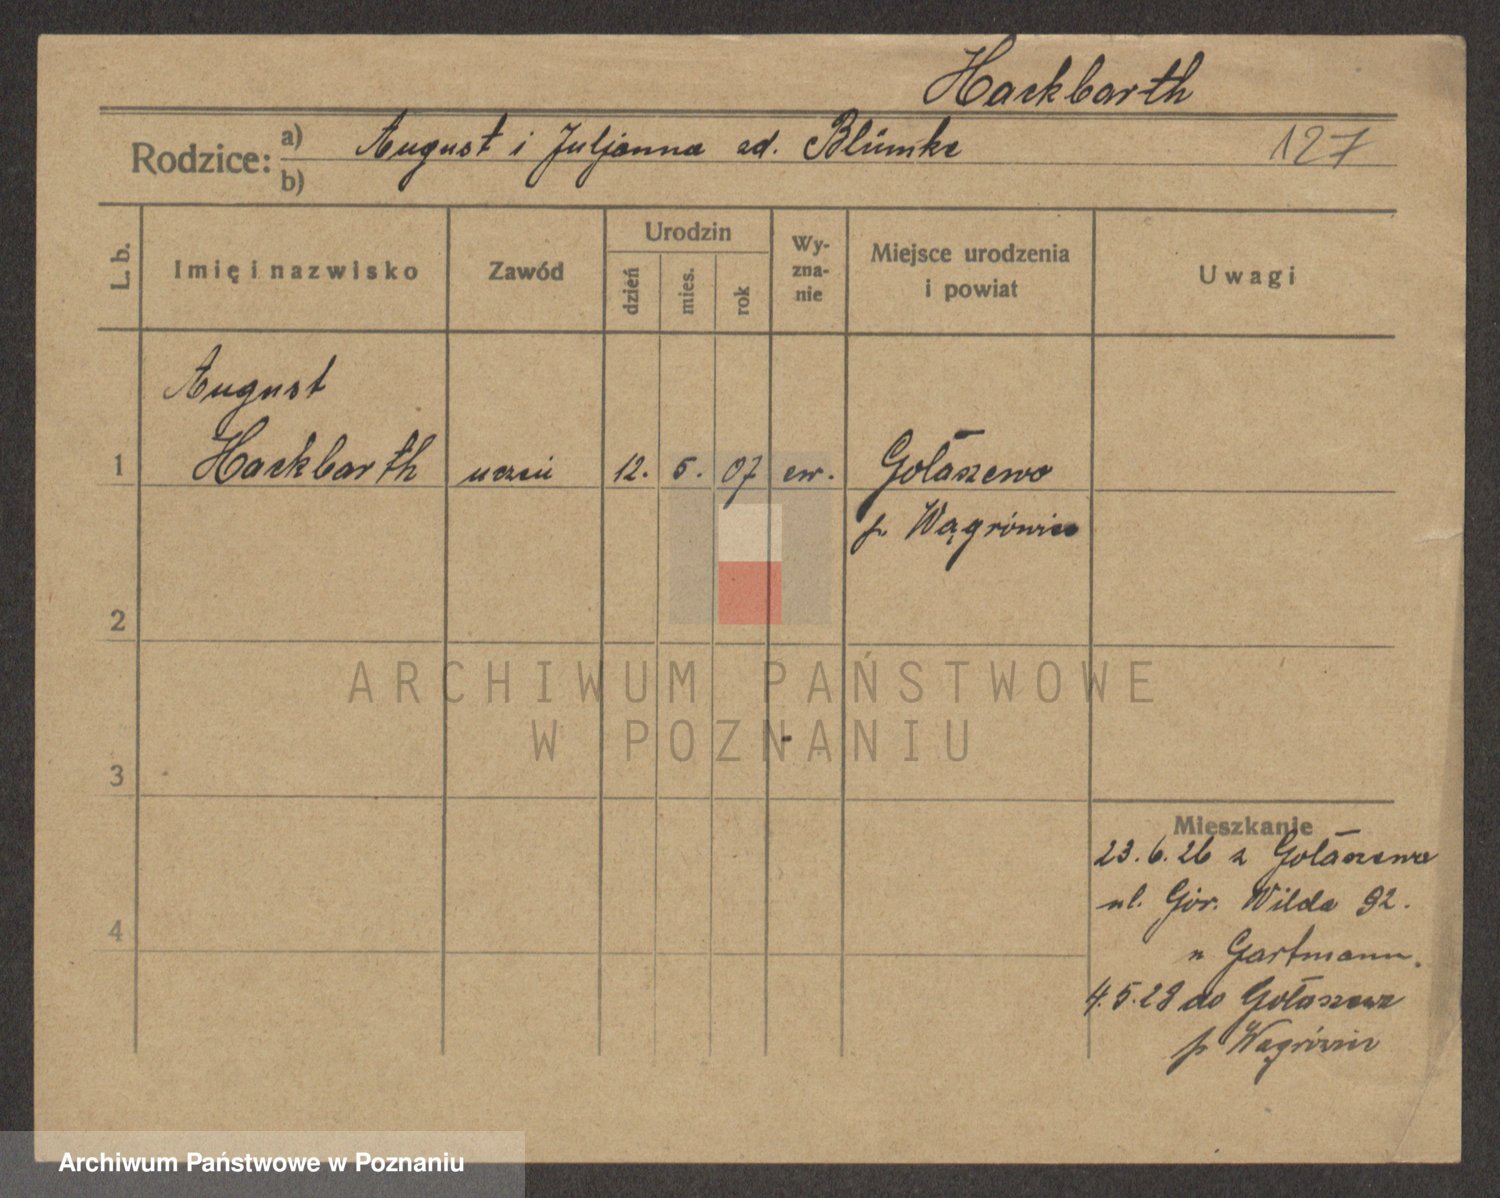 Hackbarth
Rodzice: a) August i Juljanna zd. Blümke 127
b)
L. b. Imię i nazwisko Zawód Urodzin Wy-zna-nie Miejsce urodzenia i powiat Uwagi
dzień mies. rok
August
1 Hackbarth uczeń 12. 5. 07 ew. Gołaszewo
p. Wągrówiec
2
ARCHIWUM PAŃSTWOWE
W POZNANIU
3
Mieszkanie
23.6.26 z Gołaszewa
ul. Gór. Wilda 92.
4
u Gartmann.
4.5.28 do Gołaszewa
p. Wągrówiec
Archiwum Państwowe w Poznaniu